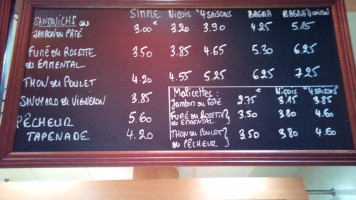 SIMPLE NIÇOIS "4 SAISONS" BAGNA BAGNA "4 SAISONS"
SANDWICHS au
JAMBON OU PÂTÉ 3.00€ 3.20 3.90 4.25 5.15
FUMÉ OU ROSETTE
OU EMMENTAL 3.50 3.85 4.65 5.30 6.25
THON OU POULET 4.20 4.55 5.25 6.25 7.25
SAVOYARD OU VIGNERON 3.85
PÊCHEUR 5.60
TAPENADE 4.20
Malicettes: € NIÇOIS "4 SAISONS
Jambon ou Pâté 2.75 3.15 3.85
FUMÉ OU ROSETTE
OU EMMENTAL } 3.50 3.80 4.60
THON OU POULET
OU PÊCHEUR } 3.50 3.80 4.60